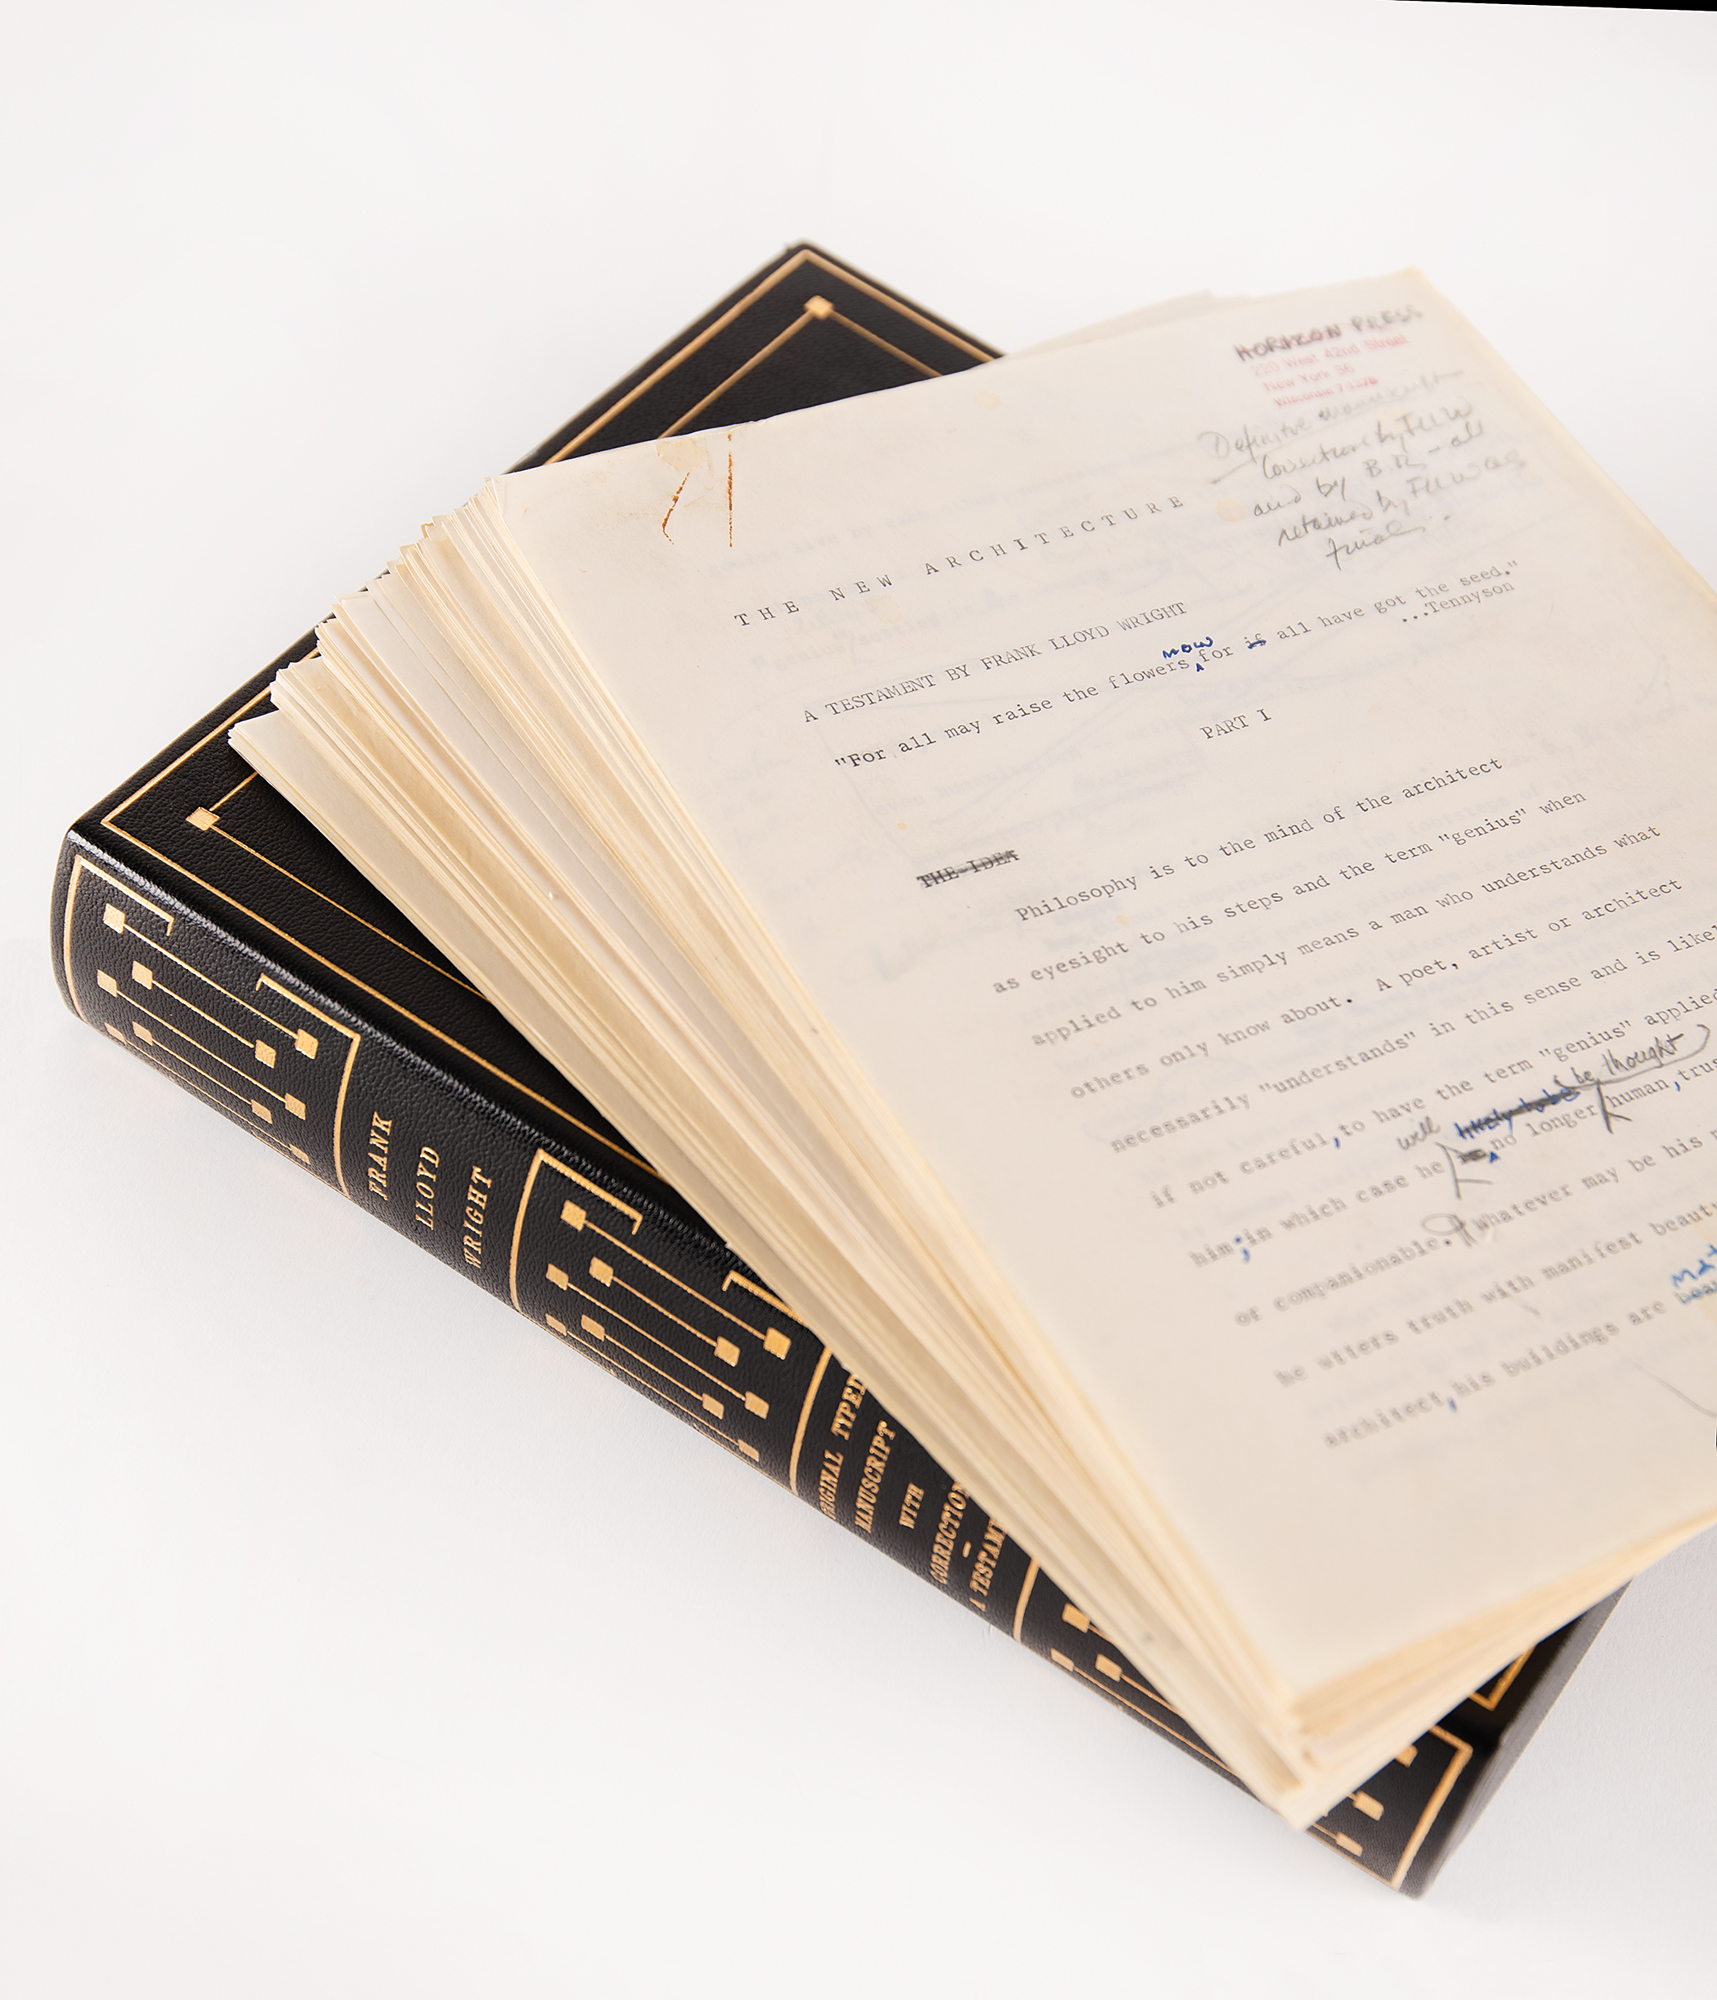 HORIZON PRESS
220 West 42nd Street
New York 36
Wisconsin 7-
Definitive manuscript
Corrections by FLLW
and by B.R. — all
retained by FLLW as
final.
THE NEW ARCHITECTURE
A TESTAMENT BY FRANK LLOYD WRIGHT
now
"For all may raise the flowers for if all have got the seed."
...Tennyson
PART I
THE IDEA
Philosophy is to the mind of the architect
as eyesight to his steps and the term "genius" when
applied to him simply means a man who understands what
others only know about. A poet, artist or architect
necessarily "understands" in this sense and is likely
if not careful, to have the term "genius" applied
will likely to be be thought
him; in which case he no longer human, trus
or companionable. Whatever may be his
he utters truth with manifest beauty
architect, his buildings are
FRANK
LLOYD
WRIGHT
ORIGINAL TYPED
MANUSCRIPT
WITH
CORRECTION
-
A TESTAM